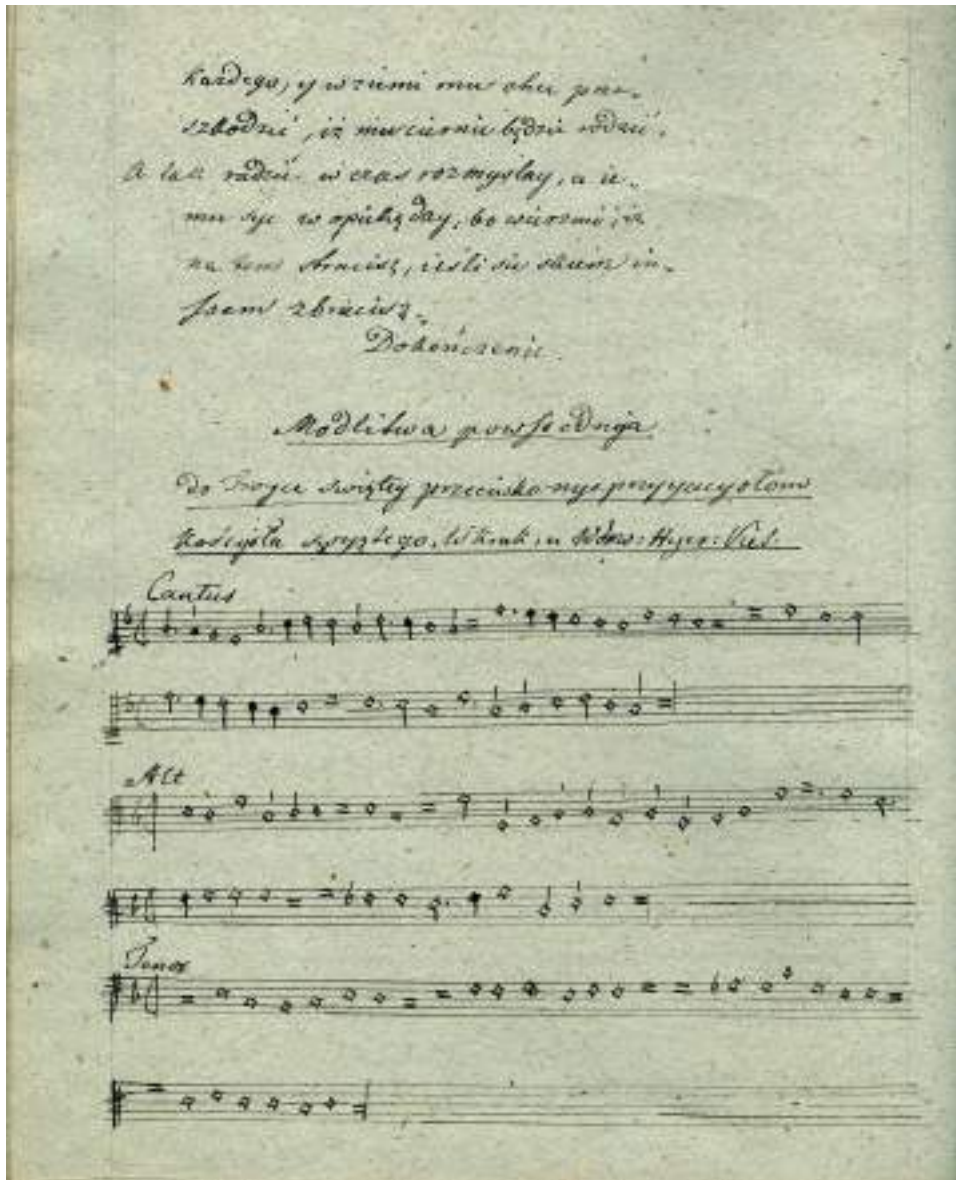 Każdego, y w ziemi mu chce prze„
szkodzić, iż mu ciernie będzie rodzić.
A tak radzę w czas rozmyślay, a ie„
mu się w opiekę day, bo
na tem stracisz, ieśli się s kiem in„
szem zbracisz.
Dokończenie.
Modlitwa powszednia
do Troyce Swiętey przeciwko nyeprzyyacyołom
Kościoła Swyętego. W Krak: u Hyer: Viet.
Cantus
Alt
Tenor